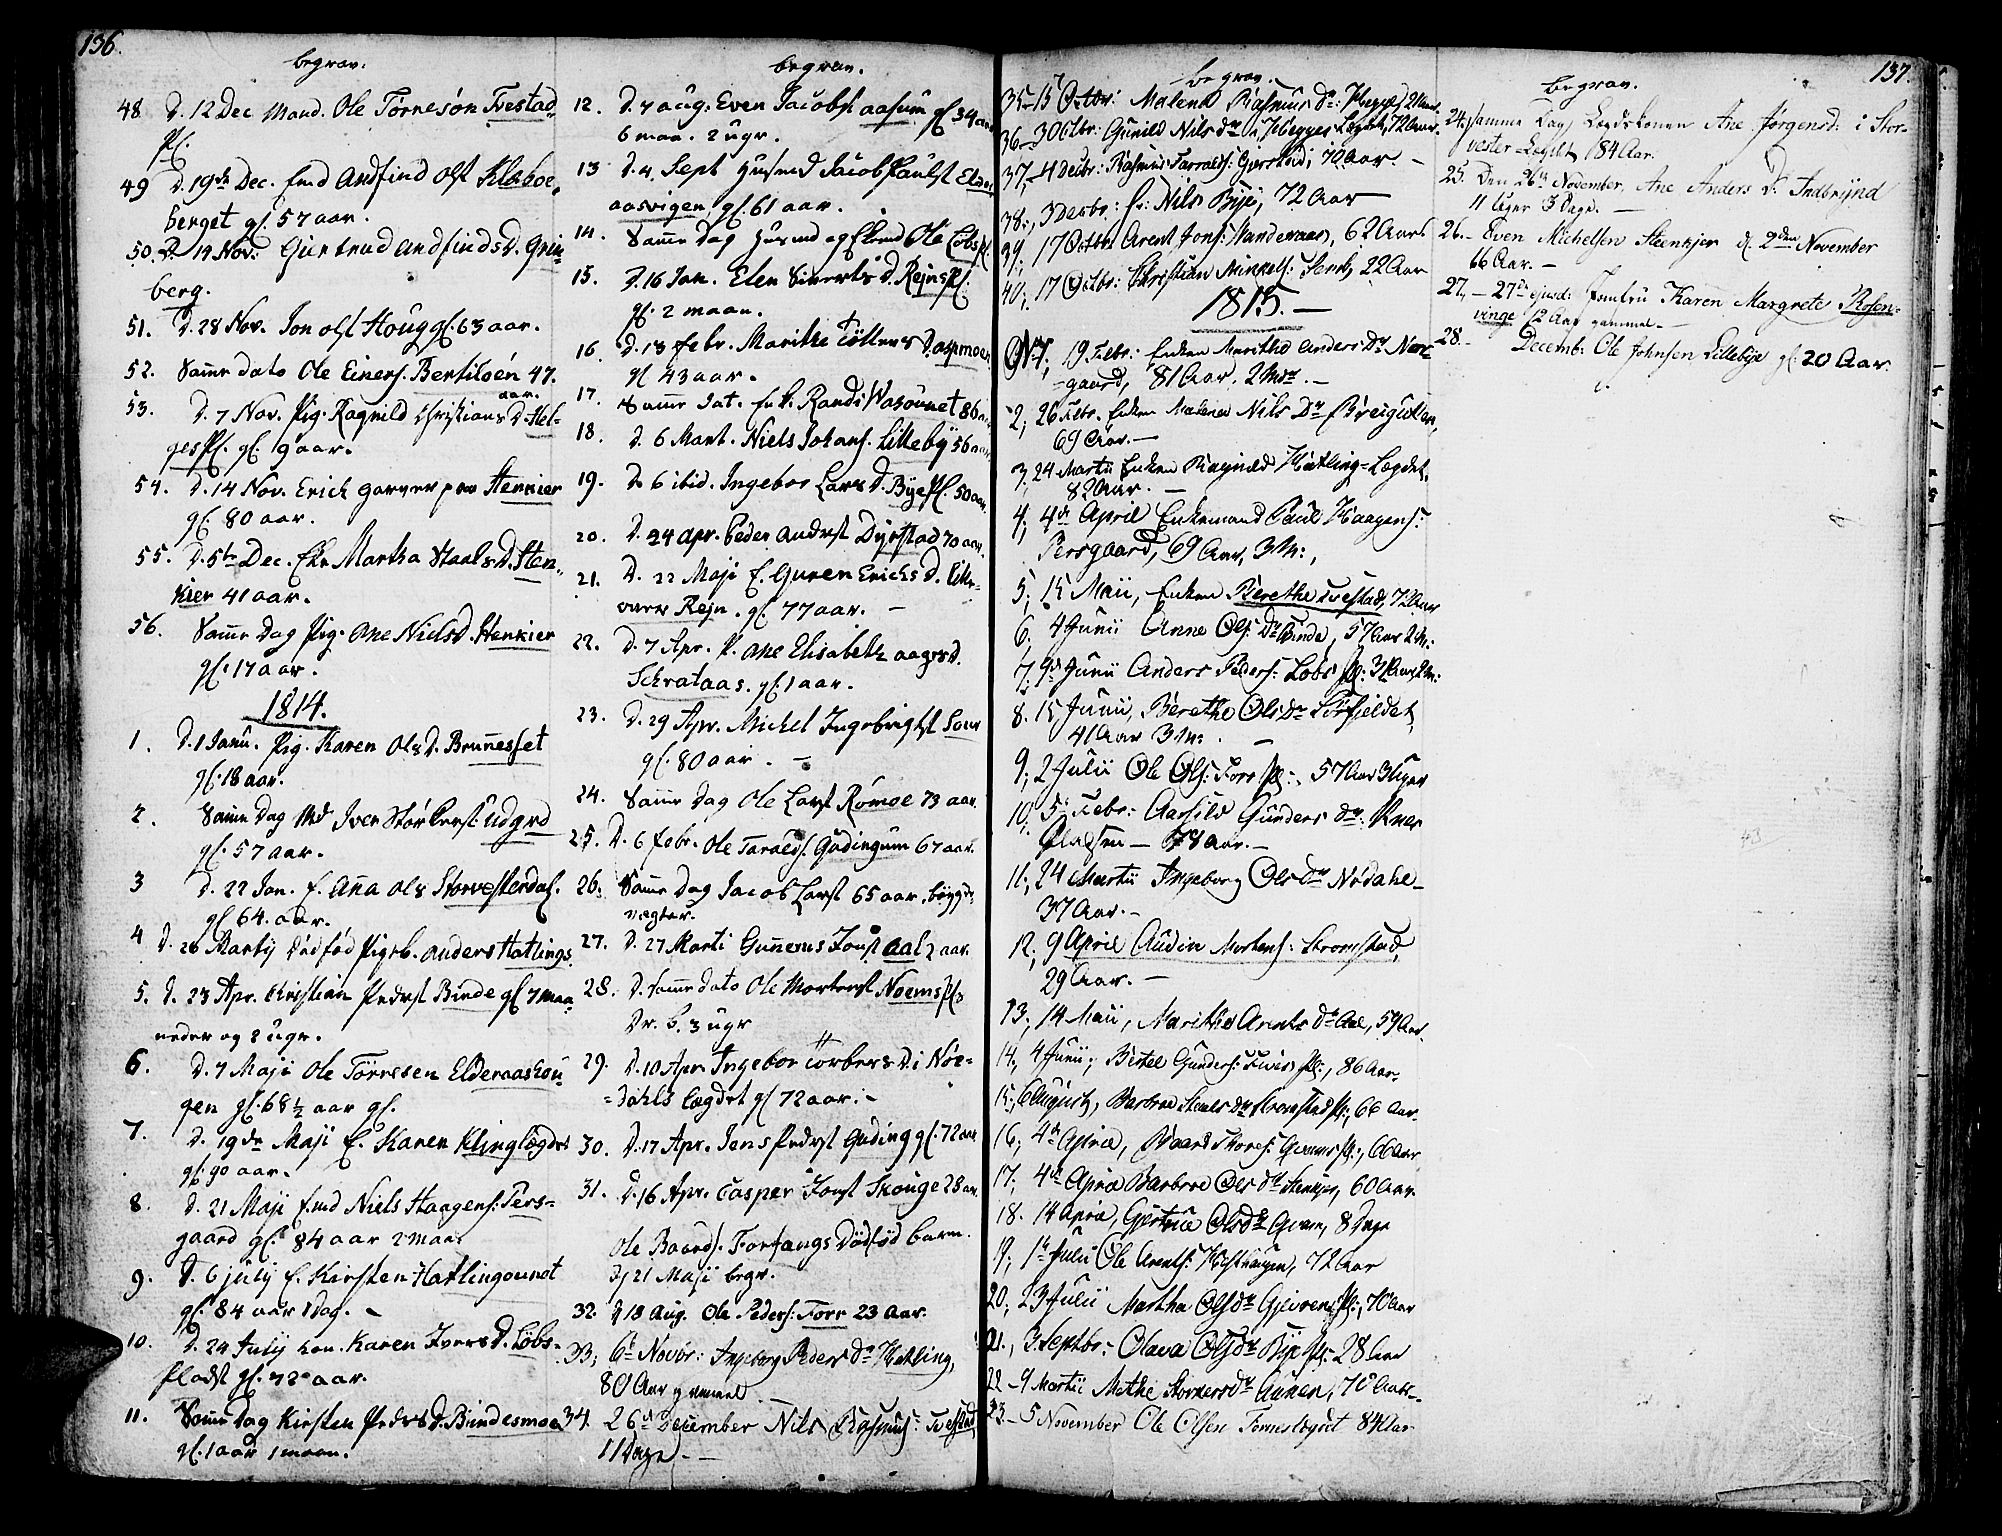 136.
begrav:
48. d. 12 Dec Mand. Ole Tørnesøn Tvestad-
Pl.
49 d. 19de Dec. Emd Andfind Olst Klaboe-
berget gl. 57 aar.
50. D 14 Nov: Gurtrud Andfinds D. Grin-
berg.
51. d. 28 Nov. Jon Olst Houg gl. 63 aar.
52. Samme dato Ole Einers. Bertiløen 47.
aar.
53. d. 7 Nov. Pig. Ragnild Christians D. Hel-
ges Pl. gl. 9 aar.
54. d. 14 Nov. Erich garver paa Stenkier
gl. 80 aar.
55. d. 5te Dec. Eke Martha Staals D. Sten-
kier 41 aar.
56. Samme Dag Pig. Ane Niels D. Stenkier
gl. 17 aar.
1814.
1. d. 1 Janu. Pig. Karen Ols D. Brunesset
gl. 18 aar.
2. Samme Dag Md Iver Størkerst Udgrd
gl. 57 aar.
3 d. 22 Jan. f. Ana Ols Storvesterdal.
gl 64 aar.
4 d. 26 Martij Dødfød Pigeb. Anders Hatlings
5. d. 23 Apr. Christian Pederst Binde gl 7 maa
neder og 2 ugr.
6. d. 7 Maji Ole Tørresen Elderaashou-
gen gl. 68 1/2 aar gl.
7. d. 19de Maji E. Karen Klinglægdet
gl. 90 aar.
8. d. 21 Maji Emd Niels Haagens. Pers-
gaard gl. 84 aar 2 maa.
9. d. 6 july E. Kirsten Hatlingounet
gl. 84 aar 1 dag.
10. d. 24 July kon. Karen Ivers D. Løbs-
pladst gl. 72 aar.
11. Samme Dag Kirsten Peders D. Bindesmoe
gl. 1 aar 1 maan.
begrav.
12. d. 7 aug. Even Jacobst aasum gl 34 aar
6 maa. 2 ugr.
13 d. 4. Sept Husmd Jacob Paulst Elder
aasvigen, gl. 61 aar.
14. Samme Dag Husmd og Ekemd Ole Løbs Pl.
15. d. 16 Jan. Elen Sivverts D. Rejns Pl.
gl. 2 maan.
16. d. 18 febr. Marithe Tøllevs D. aspmoen
gl 43 aar.
17. Samme Dat. Enk. Randi Wasøunet 86 aar
18. d. 6 Mart. Niels Johans. Lillebÿ 56 aar
19. d. 6 ibid. Ingebor Lars D. Bye Pl. 50 aar
20. d. 24 apr. Peder Anderst Dyrstad 70 aar.
21. d. 22 Maji E. Guren Erichs D. Lille-
Rejn. gl 77 aar. -
22. d. 7 Apr. P. Ane Elisabeth aages D.
Schrataas. gl. 1 aar.
23. d. 29 Apr. Michel Ingebrigtst
gl. 80 aar. -
24. Samme Dag Ole Larst Rømoe 73 aar.
25. d. 6 febr. Ole Taralds. Gudingum 67 aar.
26. Samme Dag Jacob Larst 65 aar, bøygde-
vægter.
27. d. 27 Marti Gunerus Jonst aal 2 aar.
28. d. Samme dato Ole Mortenst Noems Pl.
Dr. b. 3 ugr
29. d. 10 Apr. Ingebor Torbers D. i Nøe-
=dahls lægdet gl 72 aar. -
30. d. 17 Apr. Jens Pedrst Guding gl. 72 aar
31. d. 16 Apr. Casper Jonst Skouge 28 aar.
Ole Baards. Forfangs Dødfød barn.
D 21 Maji begr.
32. d 18 Aug. Ole Peders. Forr 23 aar.
33, 6te Novbr: Ingeborg Peders dr Hatling,
80 Aar gammel
34. 26de December Nils Rasmus: Tvestad
11 Dage. -
137.
begrav.
35- 15 Octbr: Malena Rasmus Dr: Hegges 2 Aar.
36- 30 Octbr: Gunild Nils Dr i Hegges Lægdet, 72 Aar.
37, - 4 Decbr: Rasmus Taralds: Gjerstad, 70 Aar. -
38., 3 Decbr: Nils Bye, 72 Aar
39. 17 Octbr Arent Jons: Vanderaas, 62 Aar
40, 17 Octbr: Christian Minkels: Semb, 22 Aar
1815. -
No 1, 19 Febr: Enken Marithe Anders Dr Nord-
=gaard, 81 Aar. 2 Mdr. -
2, 26 Febr. Enken Malena Nils Dr Breigutten,
69 Aar. -
3, 24 Martii Enken Ragnild Hatling=Lægdet.
82 Aar. -
4, 4de April Enkemand Paul Haagens:
Persgaard, 69 Aar, 3 M:,
5, 15 Maii, Enken Berethe Tvestad, 72 Aar
6. 4 Junii Anne Ols Dr Binde, 57 Aar 2 M:
7, 9de Junii Anders Peders: Løbs Pl: 31 Aar
8. 15 Junii, Berethe Ols Dr Lørfieldet,
41 Aar 3 M: -
9, 2 Julii Ole Ols: Forr Pl:, 57 Aar 3 Uger
10, 5 Febr: Aasild Gunders dr:
Pladsen - 78 Aar. -
11., 24 Martii Ingeborg Ols Dr Nødahl-
37 Aar. -
12, 9 April Audin Mortens: Stromstad,
29 Aar. -
13, 14 Maii, Marithe Arnts dr Aal, 59 Aar.
14., 4 Junii, Bertel Gunders: Pl:, 86 Aar-
15., 6 August, Barbroe Staals dr Stromstad Pl:, 66 Aar
16, 4de April, Baard Thores: Pl:, 66 Aar
17, 4de April Barbroe Ols dr Stenkjer, 60 Aar.
18. 14 April, Gjertrue Ols dr, 8 Dage
19, 1te Julii Ole Arents: Hesthaugen, 72 Aar
20, 23 Julii Martha Ols dr Gievrens Pl:, 70 Aar
21., 3 Septbr: Olava Ols dr Bye Pl: 28 Aar
22 - 9 Martii Mathe Storkers dr, 70 Aar-
23 - 5 November Ole Olsen Fornesløgdet 84 Aar
begrav.
24. samme Dag, Lægdskonen Ane Jorgensd: i Stor-
vester=Løgdet, 84 Aar.
25. Den 26de November, Ane Anders D: Indbrynd
11 Uger 3 Dage. -
26. - Even Michelsen Steenkjer d 2den November
66 Aar. -
27, - 27de ejusd: Jomfru Karen Margrete Rosen-
vinge 12 Aar gammel. -
28. - Decemb: Ole Johnsen Lillebye gl: 20 Aar.